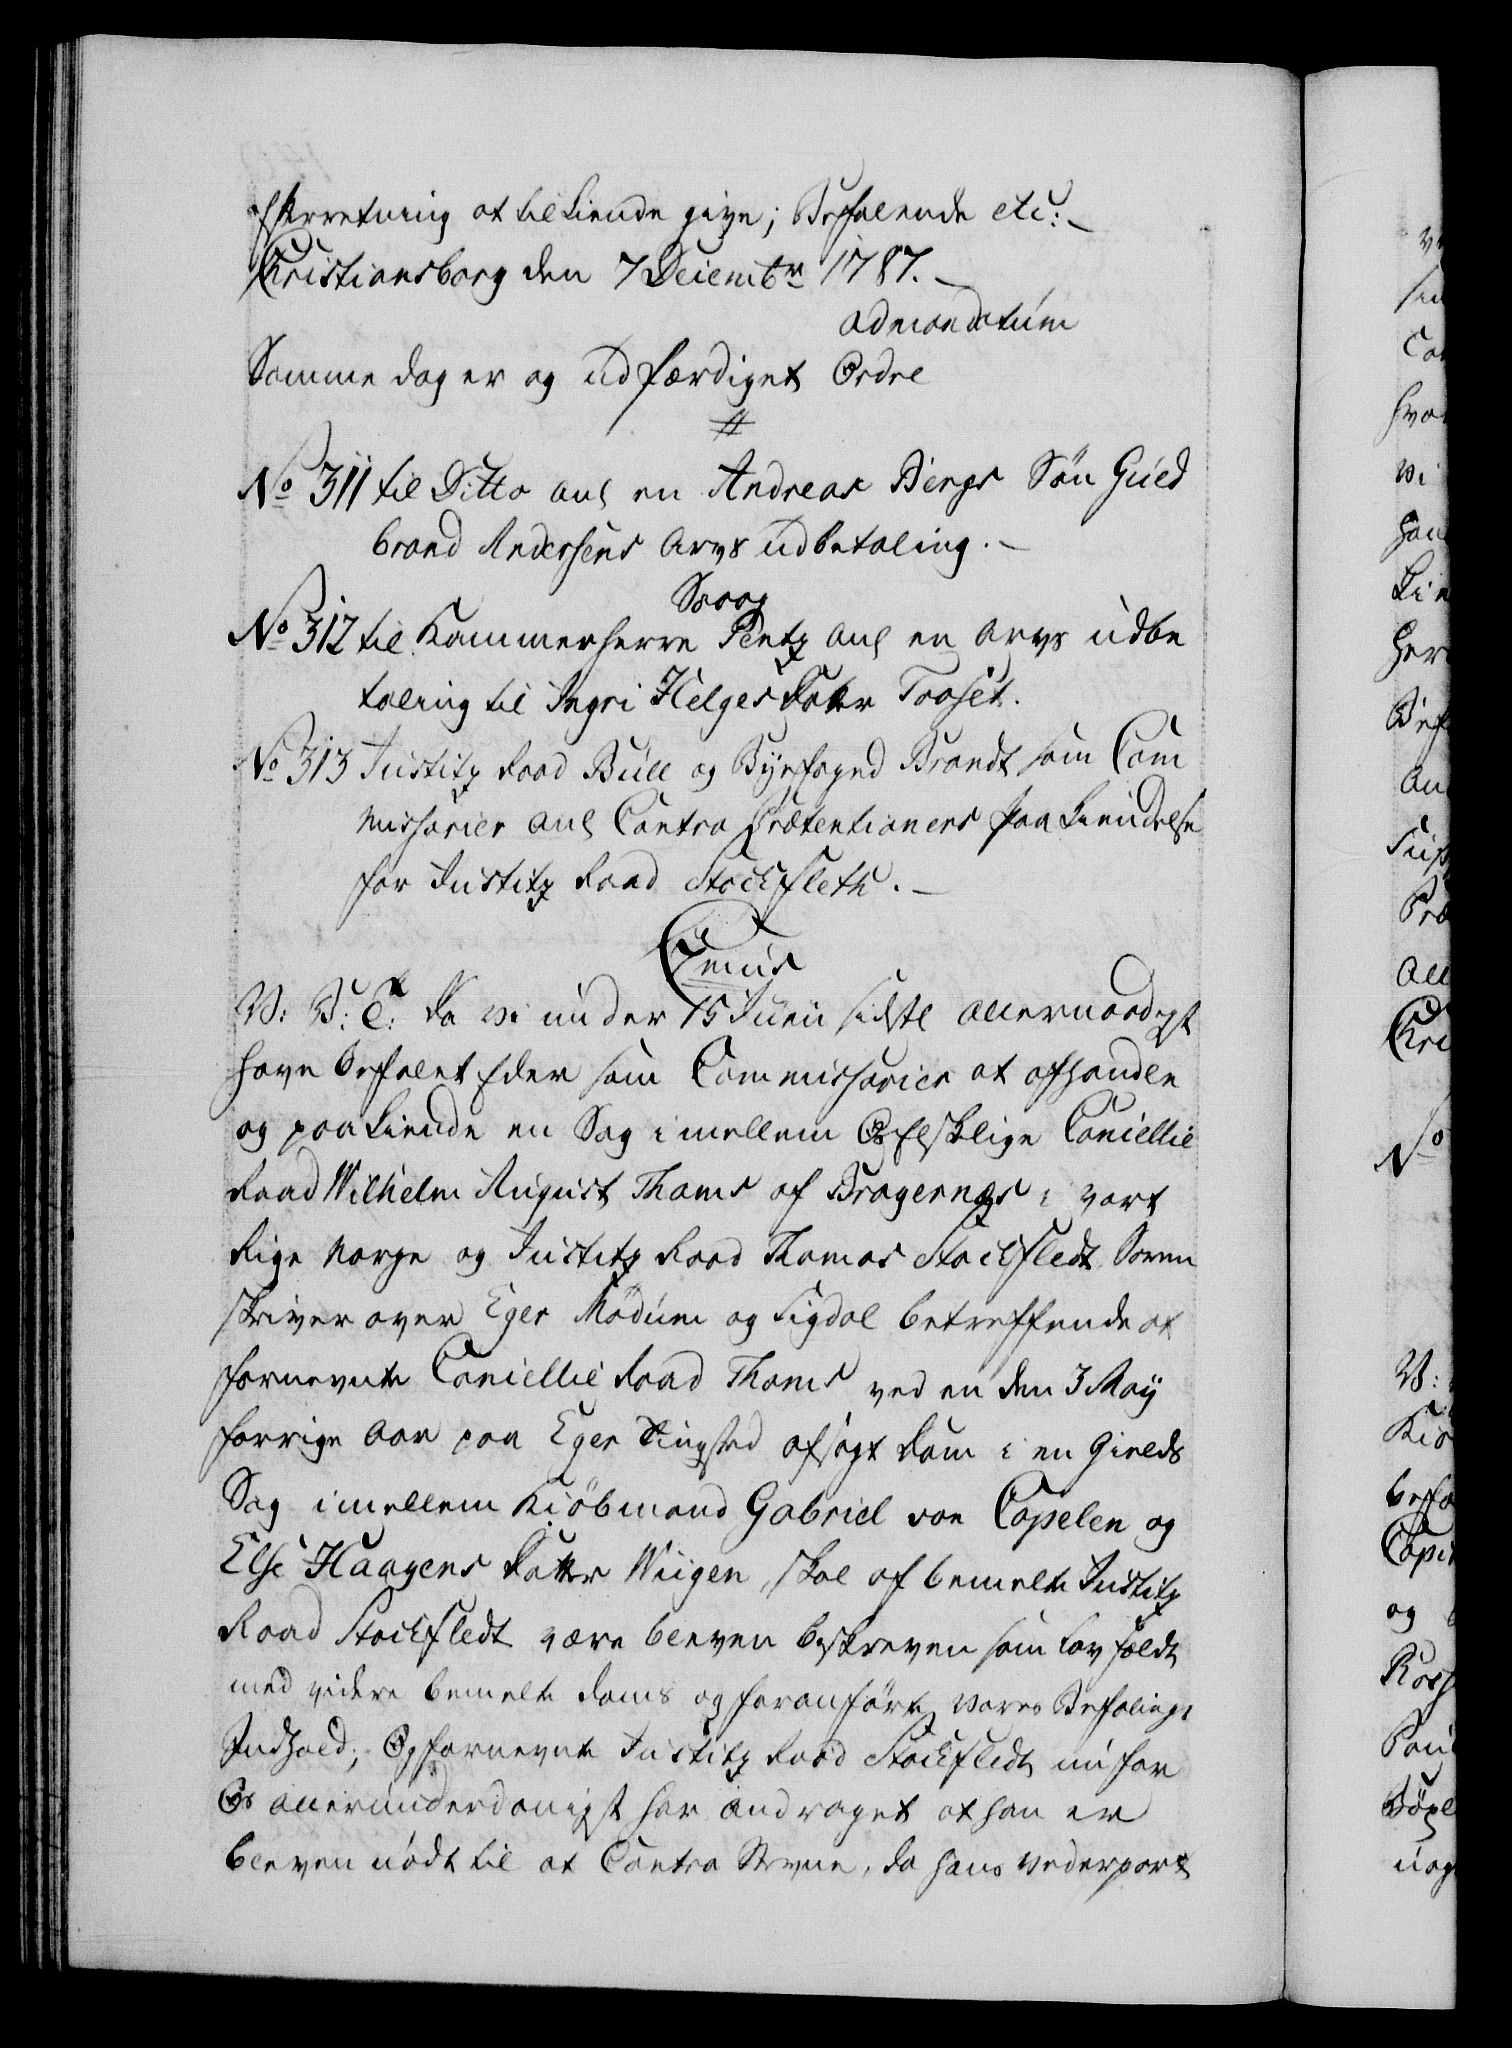 Efterretning at tilkiende give; Befalende etc:
Christiansborg den 7 Decembr 1787.
ad mandatum
Samme dag er og udfærdiget Ordre
#
No 311 til Ditto anl en Andreas Bergs Søn Guld
brand Andersens Arvs udbetaling.
Snoog
No 312 til Kammerherre Pentz anl en Arvs udbe
taling til Ingri Helges Datter Toosét.
No 313 Justitz Raad Bull og Byefoged Brandt som Com
missarier anl Contra Prætentioners paa Kiendelse
for Justitz Raad Stockfleth.
Cujus
V: V: T: Da Vi under 15 Junii sidstl allernaadigst
have befalet Eder som Commissarier at afhandle
og paakiende en Sag imellem Os Elskelige Cancellie
Raad Wilhelm August Thams af Bragernæs i vort
Rige Norge og Justitz Raad Thomas Stockfledt Soren
skriver over Eger Modum og Sigdal betreffende at
fornevnte Cancellie Raad Thams ved en den 3 May
forrige Aar paa Eger Tingsted afsagt Dom i en Gields
Sag imellem Kiöbmand Gabriel von Capelen og
Else Haagens Datter Wiigen, skal af bemelte Justitz
Raad Stockfledt være bleven beskreven som lovfældt
med videre bemelte Doms og foranførte Vores Befalings
Indhold; Og fornevnte Justitz Raad Stockfledt nu for
Os allerunderdanigst har andraget at han er
bleven nødt til at Contra Stevne, da hans Vederpart